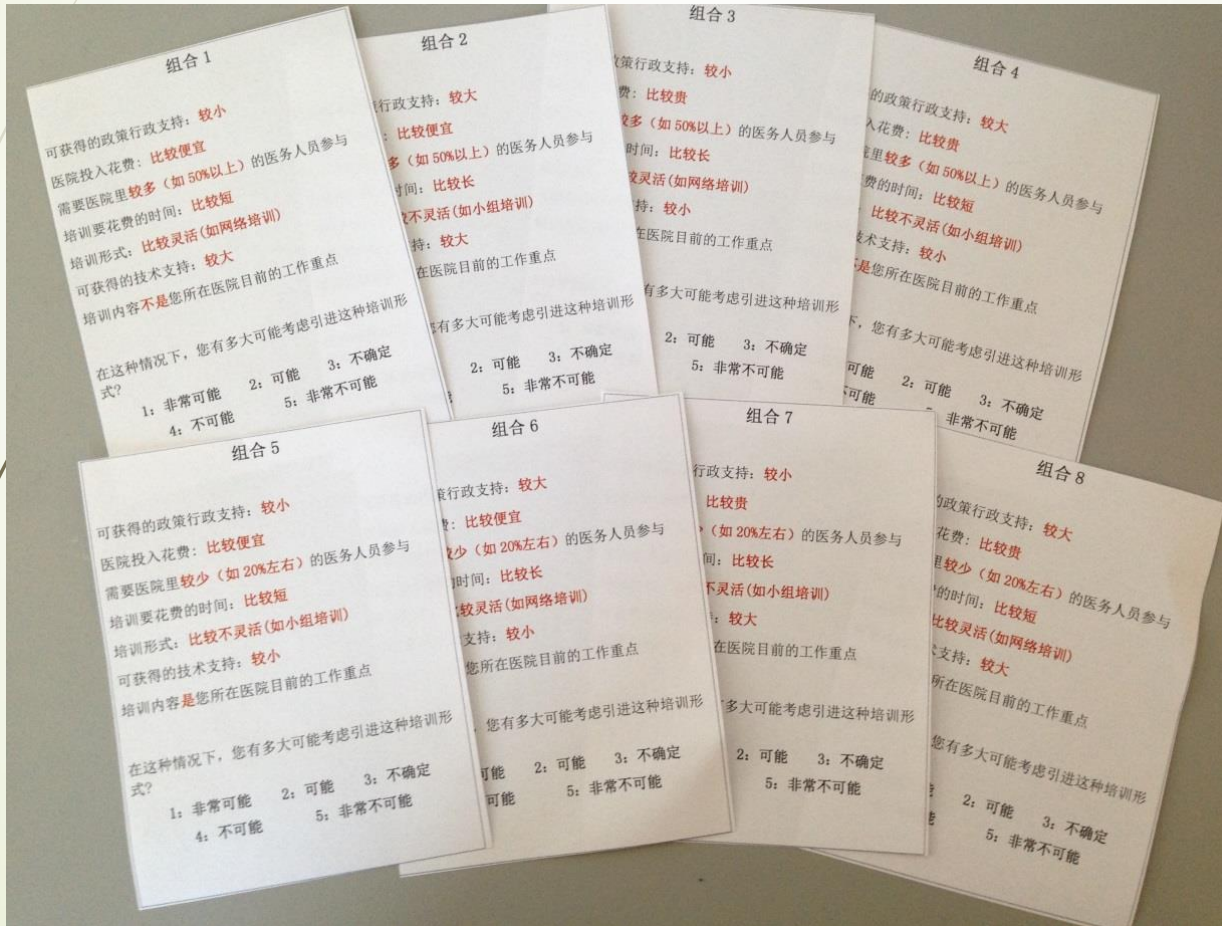 组合 1
可获得的政策行政支持：较小
医院投入花费：比较便宜
需要医院里较多（如 50%以上）的医务人员参与
培训要花费的时间：比较短
培训形式：比较灵活(如网络培训)
可获得的技术支持：较大
培训内容不是您所在医院目前的工作重点
在这种情况下，您有多大可能考虑引进这种培训形
式？
1：非常可能 2：可能 3：不确定
4：不可能 5：非常不可能
组合 2
行政支持：较大
：比较便宜
多（如 50%以上）的医务人员参与
时间：比较长
不灵活(如小组培训)
持：较大
在医院目前的工作重点
有多大可能考虑引进这种培训形
2：可能 3：不确定
5：非常不可能
组合 3
策行政支持：较小
费：比较贵
多（如 50%以上）的医务人员参与
时间：比较长
较灵活(如网络培训)
持：较小
在医院目前的工作重点
有多大可能考虑引进这种培训形
2：可能 3：不确定
5：非常不可能
组合 4
的政策行政支持：较大
入花费：比较贵
里较多（如 50%以上）的医务人员参与
费的时间：比较短
比较不灵活(如小组培训)
技术支持：较小
是您所在医院目前的工作重点
下，您有多大可能考虑引进这种培训形
可能 2：可能 3：不确定
可能 5：非常不可能
组合 5
可获得的政策行政支持：较小
医院投入花费：比较便宜
需要医院里较少（如 20%左右）的医务人员参与
培训要花费的时间：比较短
培训形式：比较不灵活(如小组培训)
可获得的技术支持：较小
培训内容是您所在医院目前的工作重点
在这种情况下，您有多大可能考虑引进这种培训形
式？
1：非常可能 2：可能 3：不确定
4：不可能 5：非常不可能
组合 6
策行政支持：较大
费：比较便宜
较少（如 20%左右）的医务人员参与
时间：比较长
比较灵活(如网络培训)
支持：较小
您所在医院目前的工作重点
，您有多大可能考虑引进这种培训形
可能 2：可能 3：不确定
可能 5：非常不可能
组合 7
行政支持：较小
比较贵
少（如 20%左右）的医务人员参与
间：比较长
不灵活(如小组培训)
：较大
在医院目前的工作重点
多大可能考虑引进这种培训形
2：可能 3：不确定
5：非常不可能
组合 8
政策行政支持：较大
花费：比较贵
里较少（如 20%左右）的医务人员参与
的时间：比较短
比较灵活(如网络培训)
支持：较大
所在医院目前的工作重点
您有多大可能考虑引进这种培训形
2：可能 3：不确定
5：非常不可能